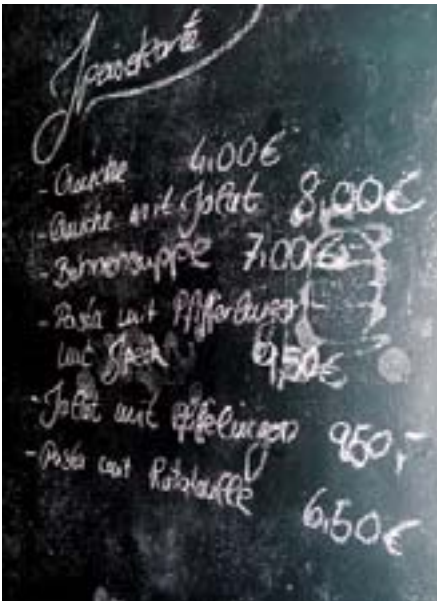 Speisekarte
- Quiche 4,00€
- Quiche mit Salat 8,00€
- Bohnensuppe 7,00€
- Pasta mit Pfifferlingen
mit Speck 9,50€
- Salat mit Pfifferlingen 9,50,-
- Pasta mit Ratatouille
6,50€